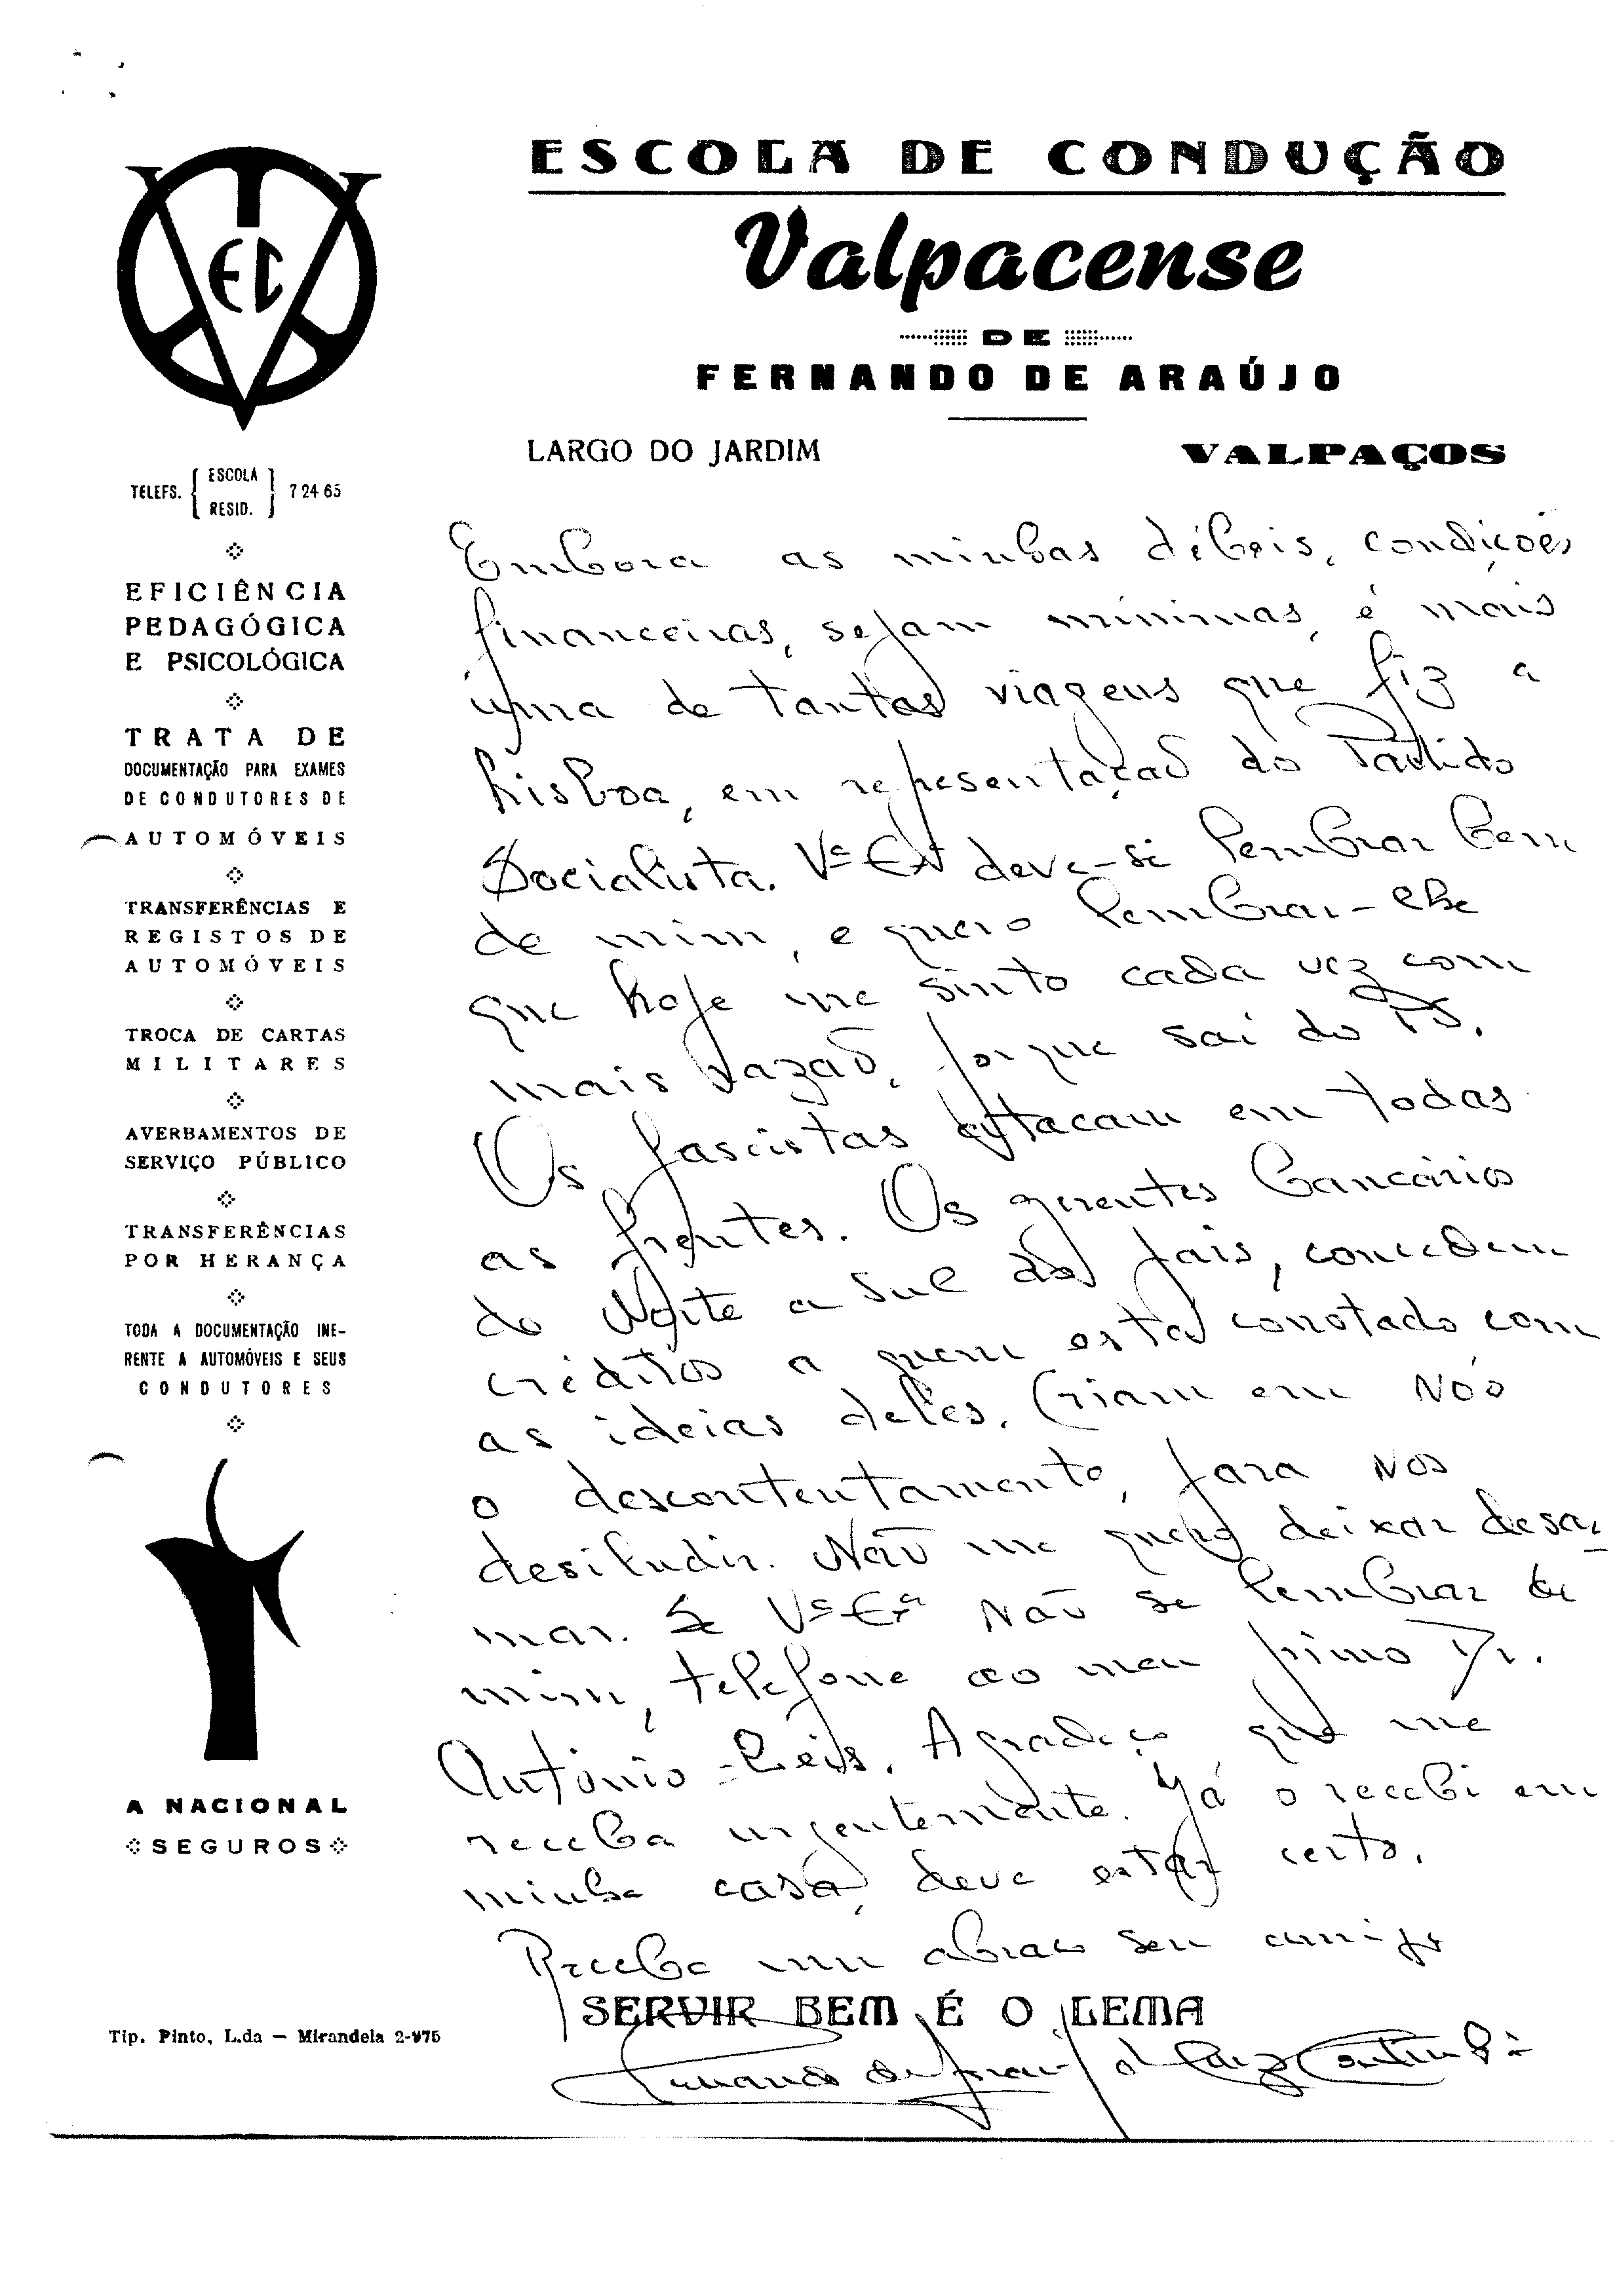 ESCOLA DE CONDUÇÃO
Valpacense
DE
FERNANDO DE ARAÚJO
LARGO DO JARDIM VALPAÇOS
EC
TELEFS. { ESCOLA RESID. } 7 24 65
EFICIÊNCIA
PEDAGÓGICA
E PSICOLÓGICA
TRATA DE
DOCUMENTAÇÃO PARA EXAMES
DE CONDUTORES DE
AUTOMÓVEIS
TRANSFERÊNCIAS E
REGISTOS DE
AUTOMÓVEIS
TROCA DE CARTAS
MILITARES
AVERBAMENTOS DE
SERVIÇO PÚBLICO
TRANSFERÊNCIAS
POR HERANÇA
TODA A DOCUMENTAÇÃO INE-
RENTE A AUTOMÓVEIS E SEUS
CONDUTORES
A NACIONAL
SEGUROS
Tip. Pinto, L.da — Mirandela 2-975
Embora as minhas débeis, condições
financeiras, sejam mínimas, é mais
uma de tantas viagens que fiz a
Lisboa, em representação do Partido
Socialista. Vª Exª deve-se lembrar bem
de mim, e quero lembrar-lhe
que hoje me sinto cada vez com
mais razão, porque saí do PS.
Os fascistas atacam em todas
as frentes. Os gerentes bancários
do Norte a Sul do País, concedem
créditos a quem está conotado com
as ideias deles. Criam em Nós
o descontentamento, para Nos
desiludir. Não me quero deixar desar
mar. Se Vª Exª Não se lembrar de
mim, telefone ao meu primo Dr.
António Reis. Agradeço que me
receba urgentemente. Já o recebi em
minha casa, deve estar certo.
Receba um abraço seu amigo
SERVIR BEM É O LEMA
Fernando de Araújo